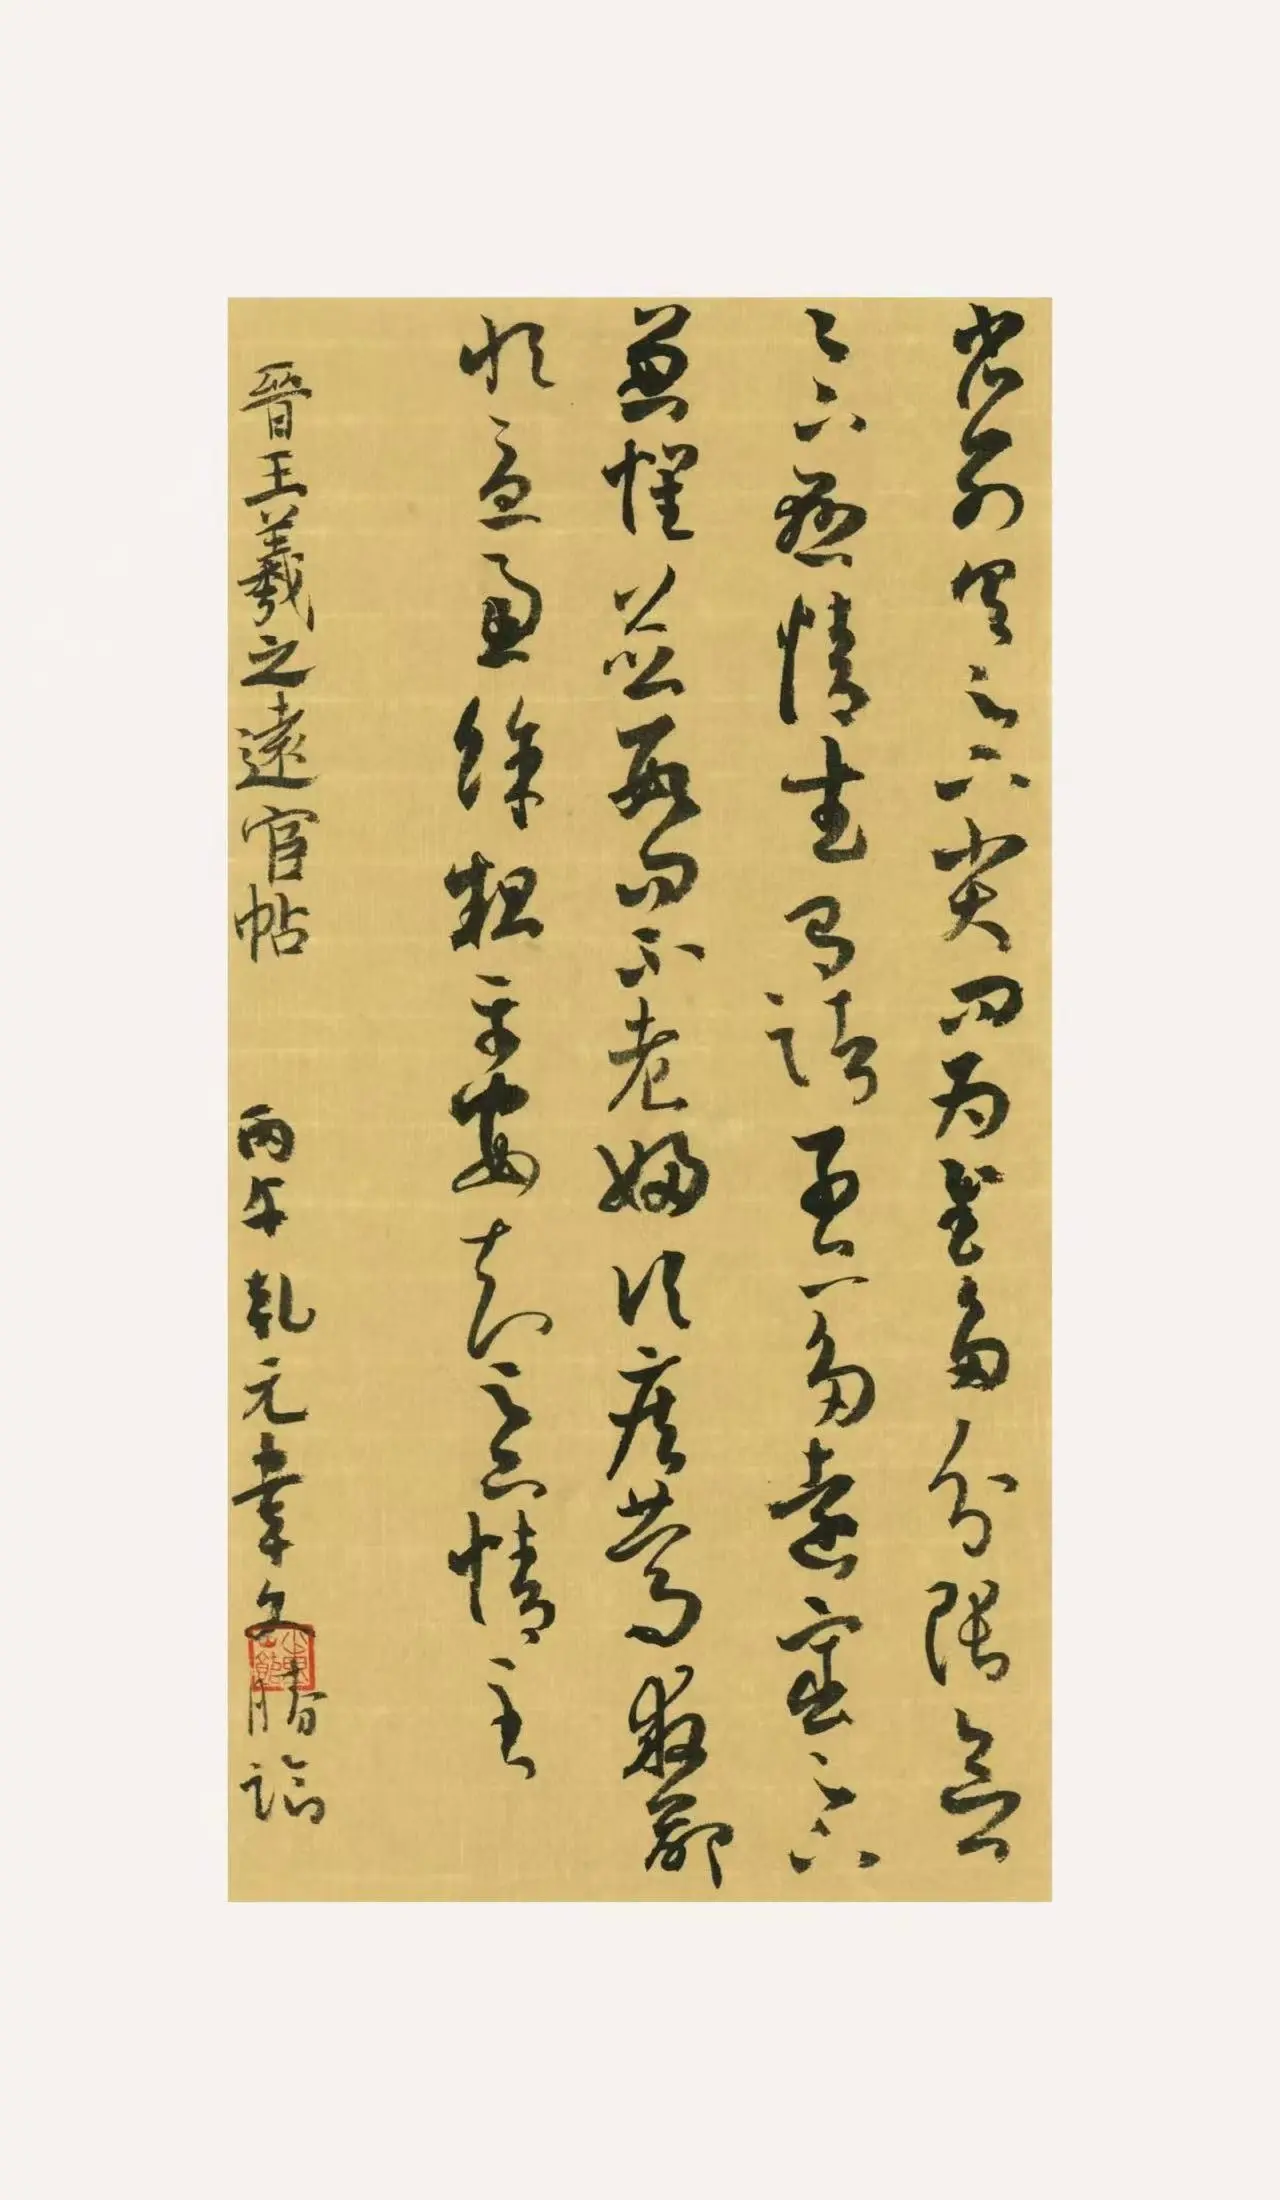 省別具足下小大問為慰多分張念
足下懸情武昌諸子亦多遠宦足下
兼懷並數問不老婦頃疾篤救命
恒憂慮餘粗平安知足下情至
晉王羲之遠宦帖 丙午乾元